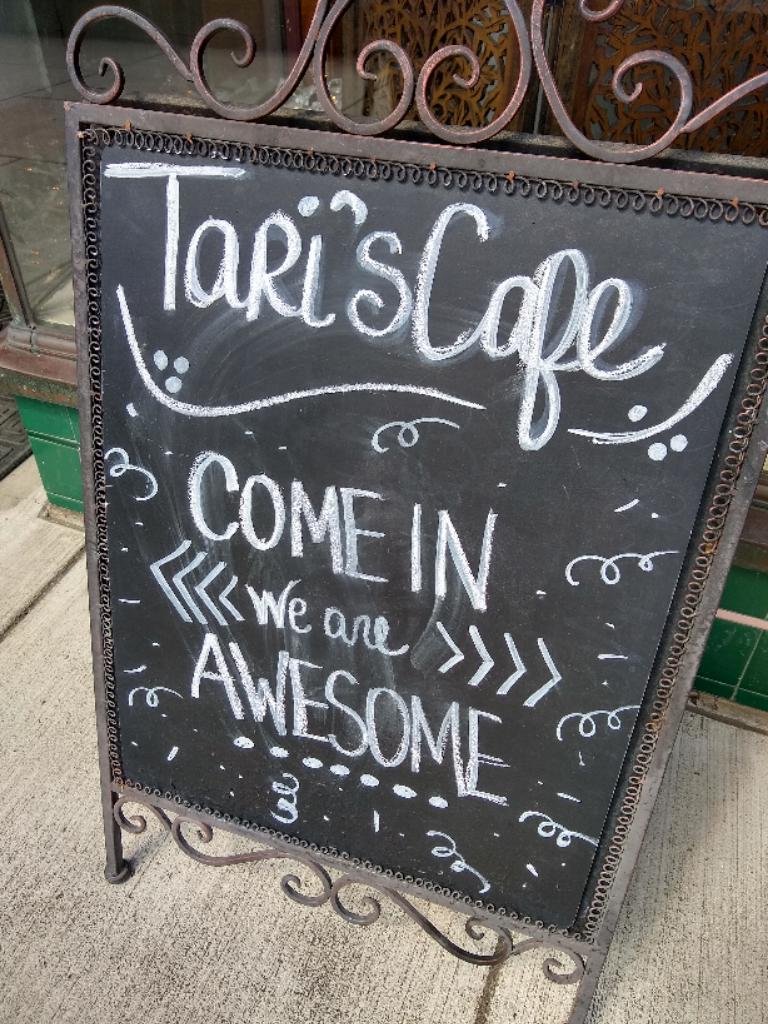 Tari's Cafe
COME IN
<<<< we are >>>>
AWESOME